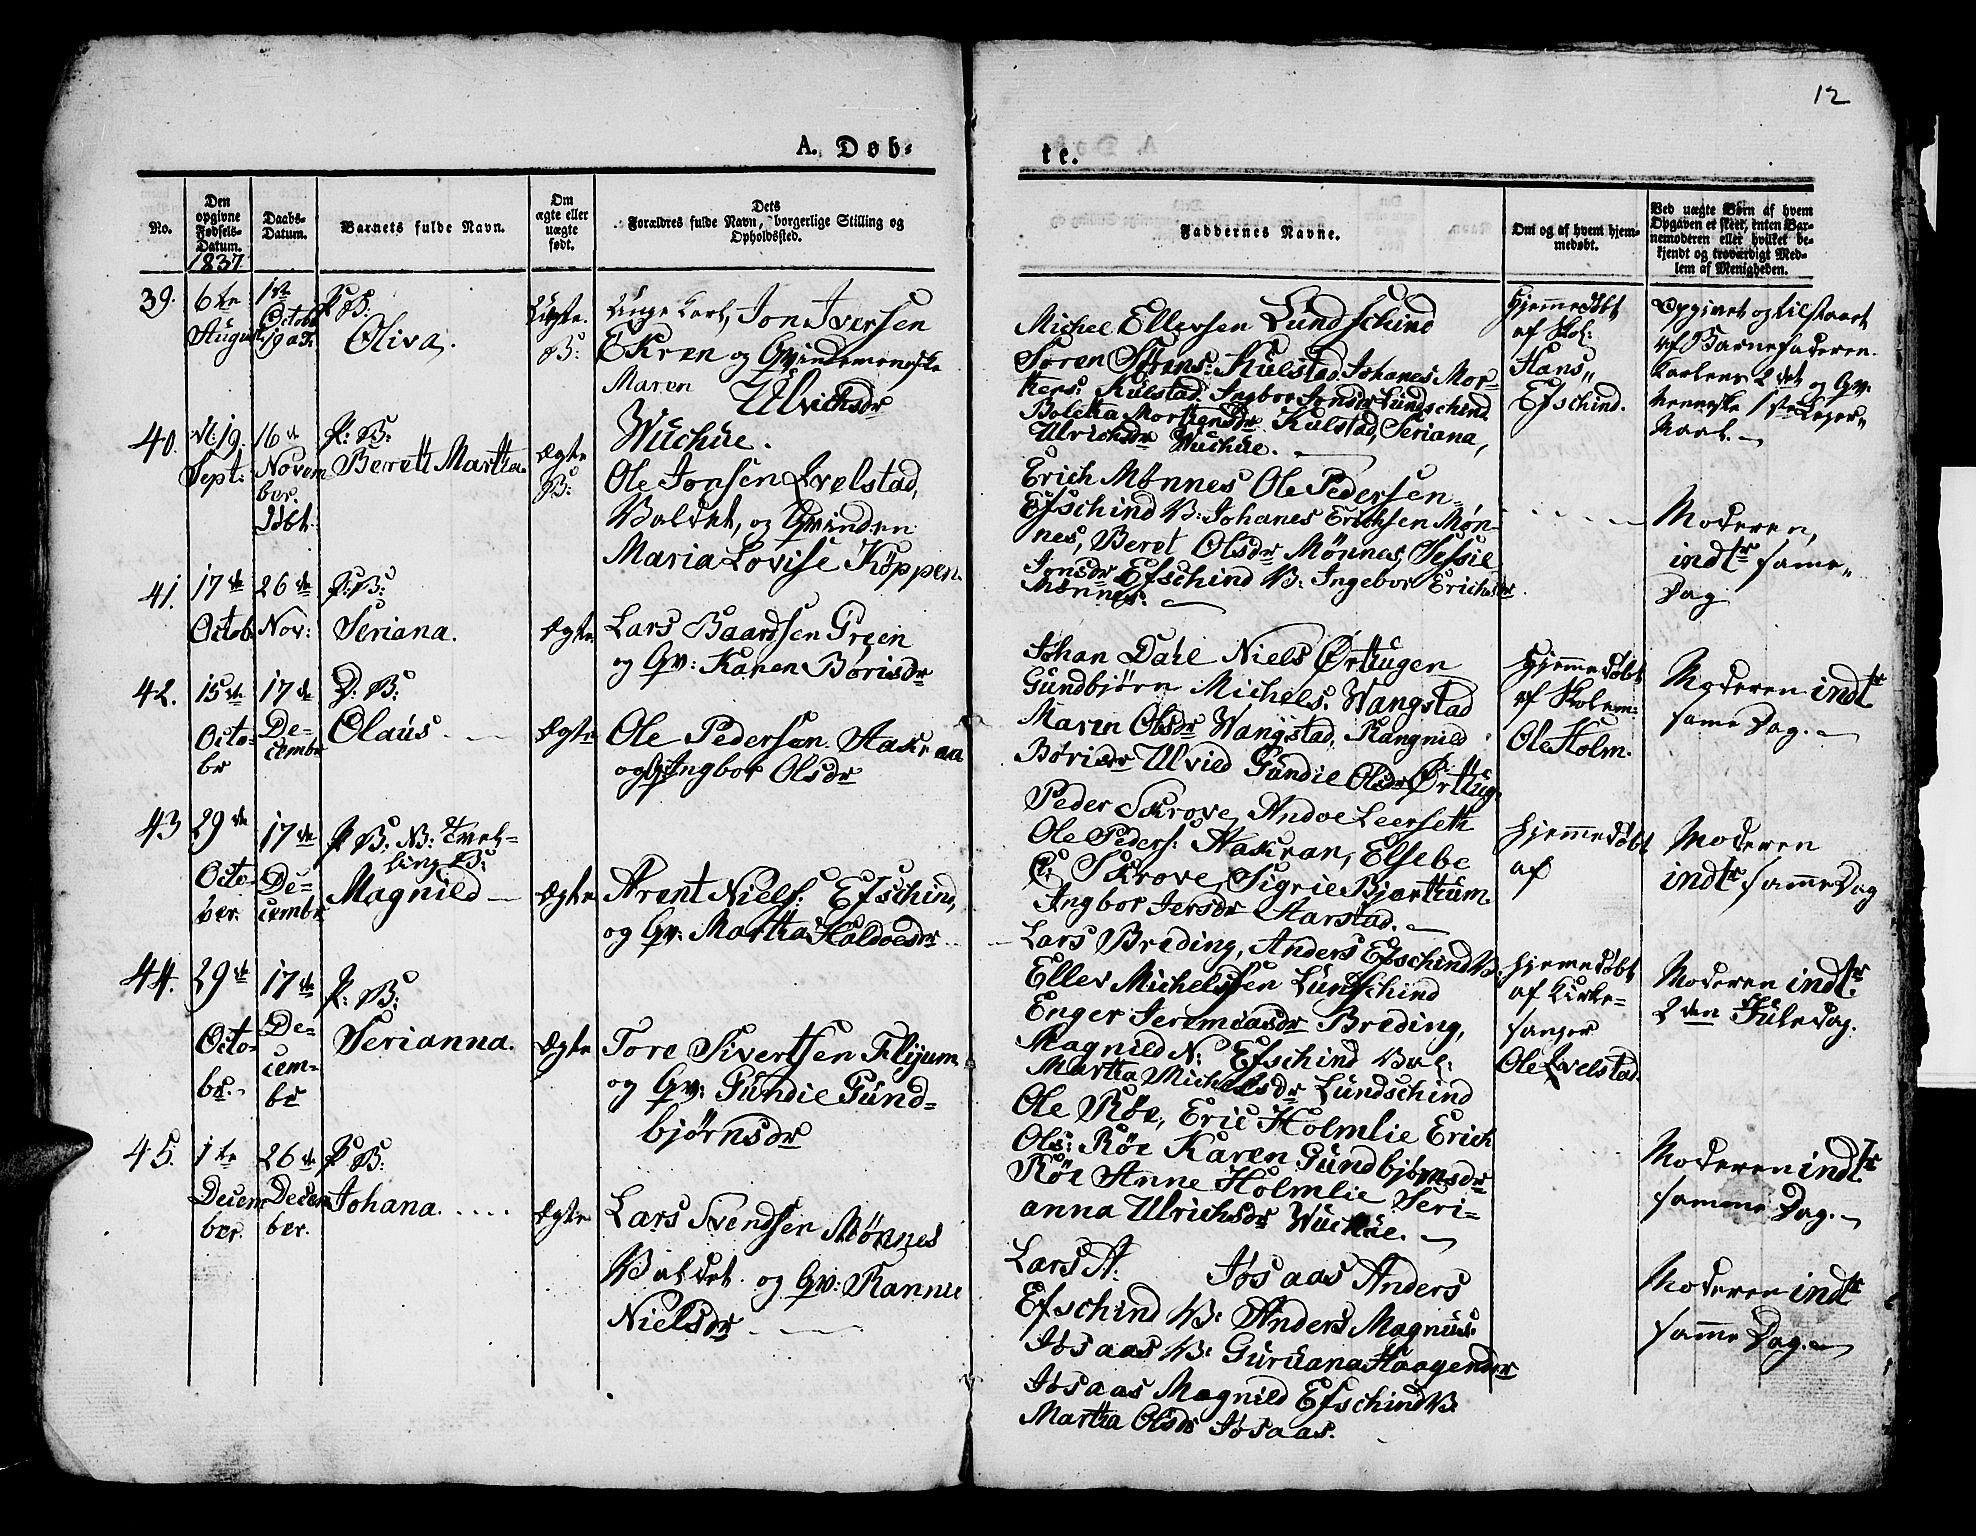 12
A. Døb-
te.
No.
Den opgivne Fødsels-Datum.
1837
Daabs-Datum.
Barnets fulde Navn.
Om ægte eller uægte født.
Dets Forældres fulde Navn, borgerlige Stilling og Opholdssted.
Faddernes Navne.
Om og af hvem hjemmedøbt.
Ved uægte Børn af hvem Opgaven er skeet, enten Barnemoderen eller hvilket bekjendt og troværdigt Medlem af Menigheden.
39.
6te
August
1ste
Octobr
P: B:
Oliva.
Uægte
B:
Unge Karl, Jon Iversen
Ekren og Qvindemenneske
Maren Ulrichsdr
Wuchue.
Michel Ellevsen Lundschind
Søren Sørens: Kulstad, Johanes Mor-
tens: Kulstad, Ingbor Jonsdr Lundschind
Boletta Mortensdr Kulstad, Seriana,
Ulrichsdr Wuchue.
Hjemmedøbt
af Skol:
Hans
Efschind.
Opgivet og tilstaaet
af Barnefaderen.
Karlens 2det og Qv:
menneske 1ste Leger-
maal.
40.
d: 19.
Sept:
16de
Novem
ber.
døbt.
P: B:
Berett Martha.
Ægte
B:
Ole Jonsen Lvelstad,
Valdet, og Qvinden
Maria Lovise Köppen.
Erich Mønnes Ole Pedersen
Efschind V: Johanes Erichsen Møn-
nes, Beret Olsdr Mønnes, Sessie
Jonsdr Efschind V: Ingebor Erichsdr
Mønnes.
Moderen,
indtr same
Dag
41.
17de
Octob
26de
Nov:
P: B:
Seriana.
Ægte
Lars Baardsen Green
og Qv: Karen Børisdr
Johan Dahl Niels Ørthugen
Gundbjørn Michels. Wangstad
Maren Olsdr Wangstad, Rangnild
Børisdr Ulvild Gundie Olsdr Ørthug.
Hjemmedøbt
af Skolem:
Ole Holm.
Moderen indtr
same Dag.
42.
15de
Octo-
br
17de
De-
cembr
D: B:
Olaus.
Ægte
Ole Pedersen Aakran
og Qv: Ingbor Olsdr
Peder Skrove, Andoe Leerseth
Ole Peders: Aakran, Elsebe
Skrove, Sigrie Bjørthum.
Ingbor Jersdr Aarstad.
Hjemmedøbt
af
Moderen
indtr samme Dag
43
29de
Octo-
ber.
17de
De-
cembr
P: B: N: Tvil-
ling B:
Magnild
Ægte
Arent Niels: Efschind,
og Qv: Martha Haldoesdr
Lars Breding, Anders Efschind V:
Ellev Michelssen Lundschind
Enger Jeremiasdr Breding,
Magnild N: Efschind Val:
Martha Michelsdr Lundschind
Hjemedøbt
af Kirke-
sanger
Ole Lvelstad.
Moderen indtr
2den Juledag.
44.
29de
Octo-
br.
17de
De-
cem-
br
P: B:
Serianna.
Ægte
Tore Sivertsen Flijum
og Qv: Gundie Gund-
bjørnsdr
Ole Røe, Eric Holmlie Erich
Ols: Røe Karen Gundbjørnsdr
Røe Anne Holmlie Seri-
anna Ulrichsdr Wuchue.
Moderen indtr
samme Dag.
45.
1te
Decem
ber.
26de
Decem
ber.
P: B:
Johana.
Ægte
Lars Svendsen Mønnes
Valdet. og Qv: Rannie
Nielsdr
Lars A: Jøsaas Anders
Efschind V: Anders Magnus:
Jøsaas V: Guruana Haagensdr
Jøsaas Magnild Efschind V:
Martha Olsdr Jøsaas.
Moderen indtr
samme Dag.